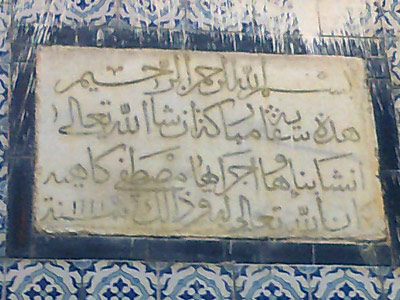 بسم الله الرحمن الرحيم
هذه سقاية مباركة ان شا الله تعالى
انشا بناها و اجراها مصطفى كاهية
كان الله تعالى له و ذالك سنة